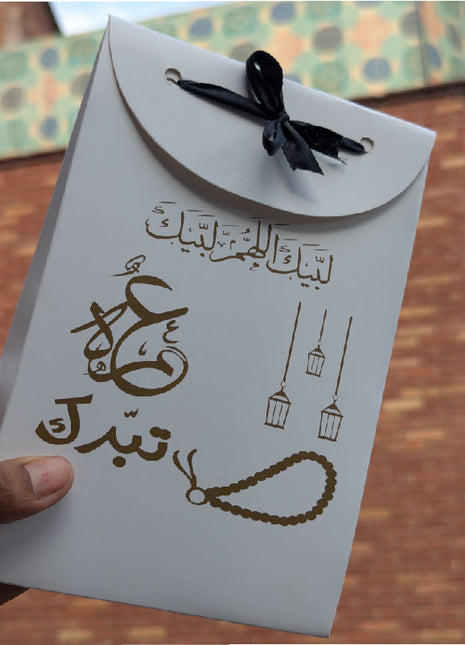 لَبَّيْكَ اللَّهُمَّ لَبَّيْكَ
عمرہ
تبّرك